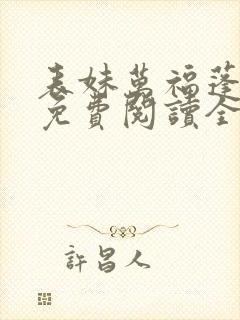 表妹萬福蓬
免費閱讀全
許昌人